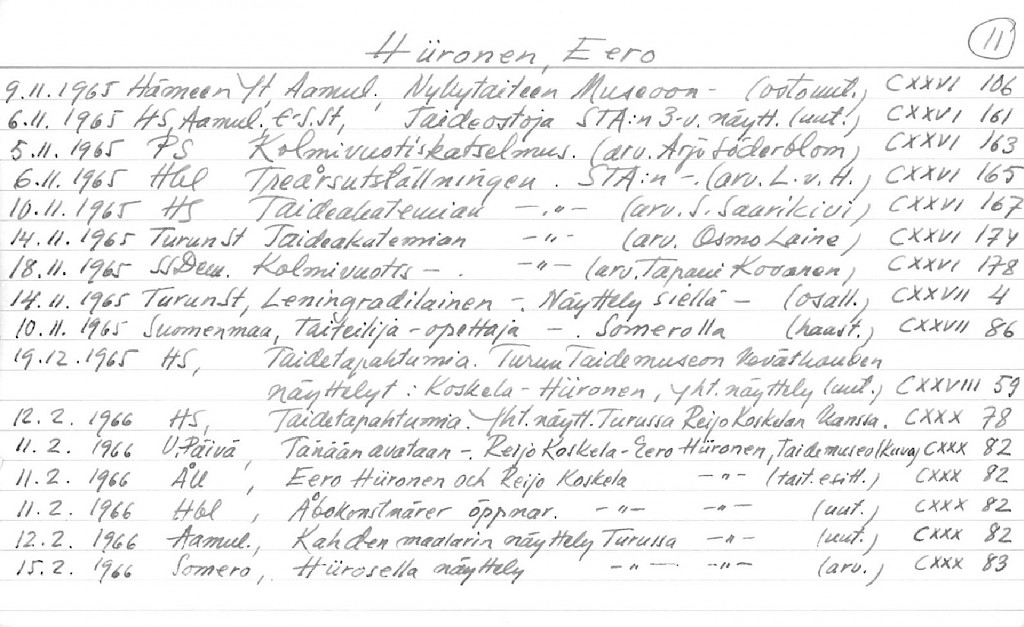 11
Hiironen, Eero
9.11.1965 Hämeen Yt, Aamul., Nykytaiteen Museoon - (ostouut.) CXXVI 106
6.11.1965 HS, Aamul. E-S.St, Taideostoja STA:n 3-v. näytt. (uut.) CXXVI 161
5.11.1965 PS Kolmivuotiskatselmus. (arv. Arjo Söderblom) CXXVI 163
6.11.1965 Hbl Treårsutställningen. STA:n -. (arv. L.v.H.) CXXVI 165
10.11.1965 HS Taideakatemian -"- (arv. S. Saarikivi) CXXVI 167
14.11.1965 TurunSt Taideakatemian -"- (arv. Osmo Laine) CXXVI 174
18.11.1965 SSDem. Kolmivuotis - . -"- (arv. Tapani Kovanen) CXXVI 178
14.11.1965 TurunSt, Leningradilainen -. Näyttely siellä - (osall.) CXXVII 4
10.11.1965 Suomenmaa, Taiteilija-opettaja -. Somerolla (haast.) CXXVII 86
19.12.1965 HS, Taidetapahtumia. Turun Taidemuseon kevätkauden
näyttelyt: Koskela-Hiironen, yht. näyttely (uut.) CXXVIII 59
12.2.1966 HS, Taidetapahtumia. Yht. näytt. Turussa Reijo Koskelan kanssa. CXXX 78
11.2.1966 U.Päivä, Tänään avataan -. Reijo Koskela-Eero Hiironen, Taidemuseo (kuva) CXXX 82
11.2.1966 ÅU, Eero Hiironen och Reijo Koskela -"- (tait. esitt.) CXXX 82
11.2.1966 Hbl, Åbokonstnärer öppnar. -"- -"- (uut.) CXXX 82
12.2.1966 Aamul., Kahden maalarin näyttely Turussa -"- (uut.) CXXX 82
15.2.1966 Somero, Hiirosella näyttely -"- -"- (arv.) CXXX 83